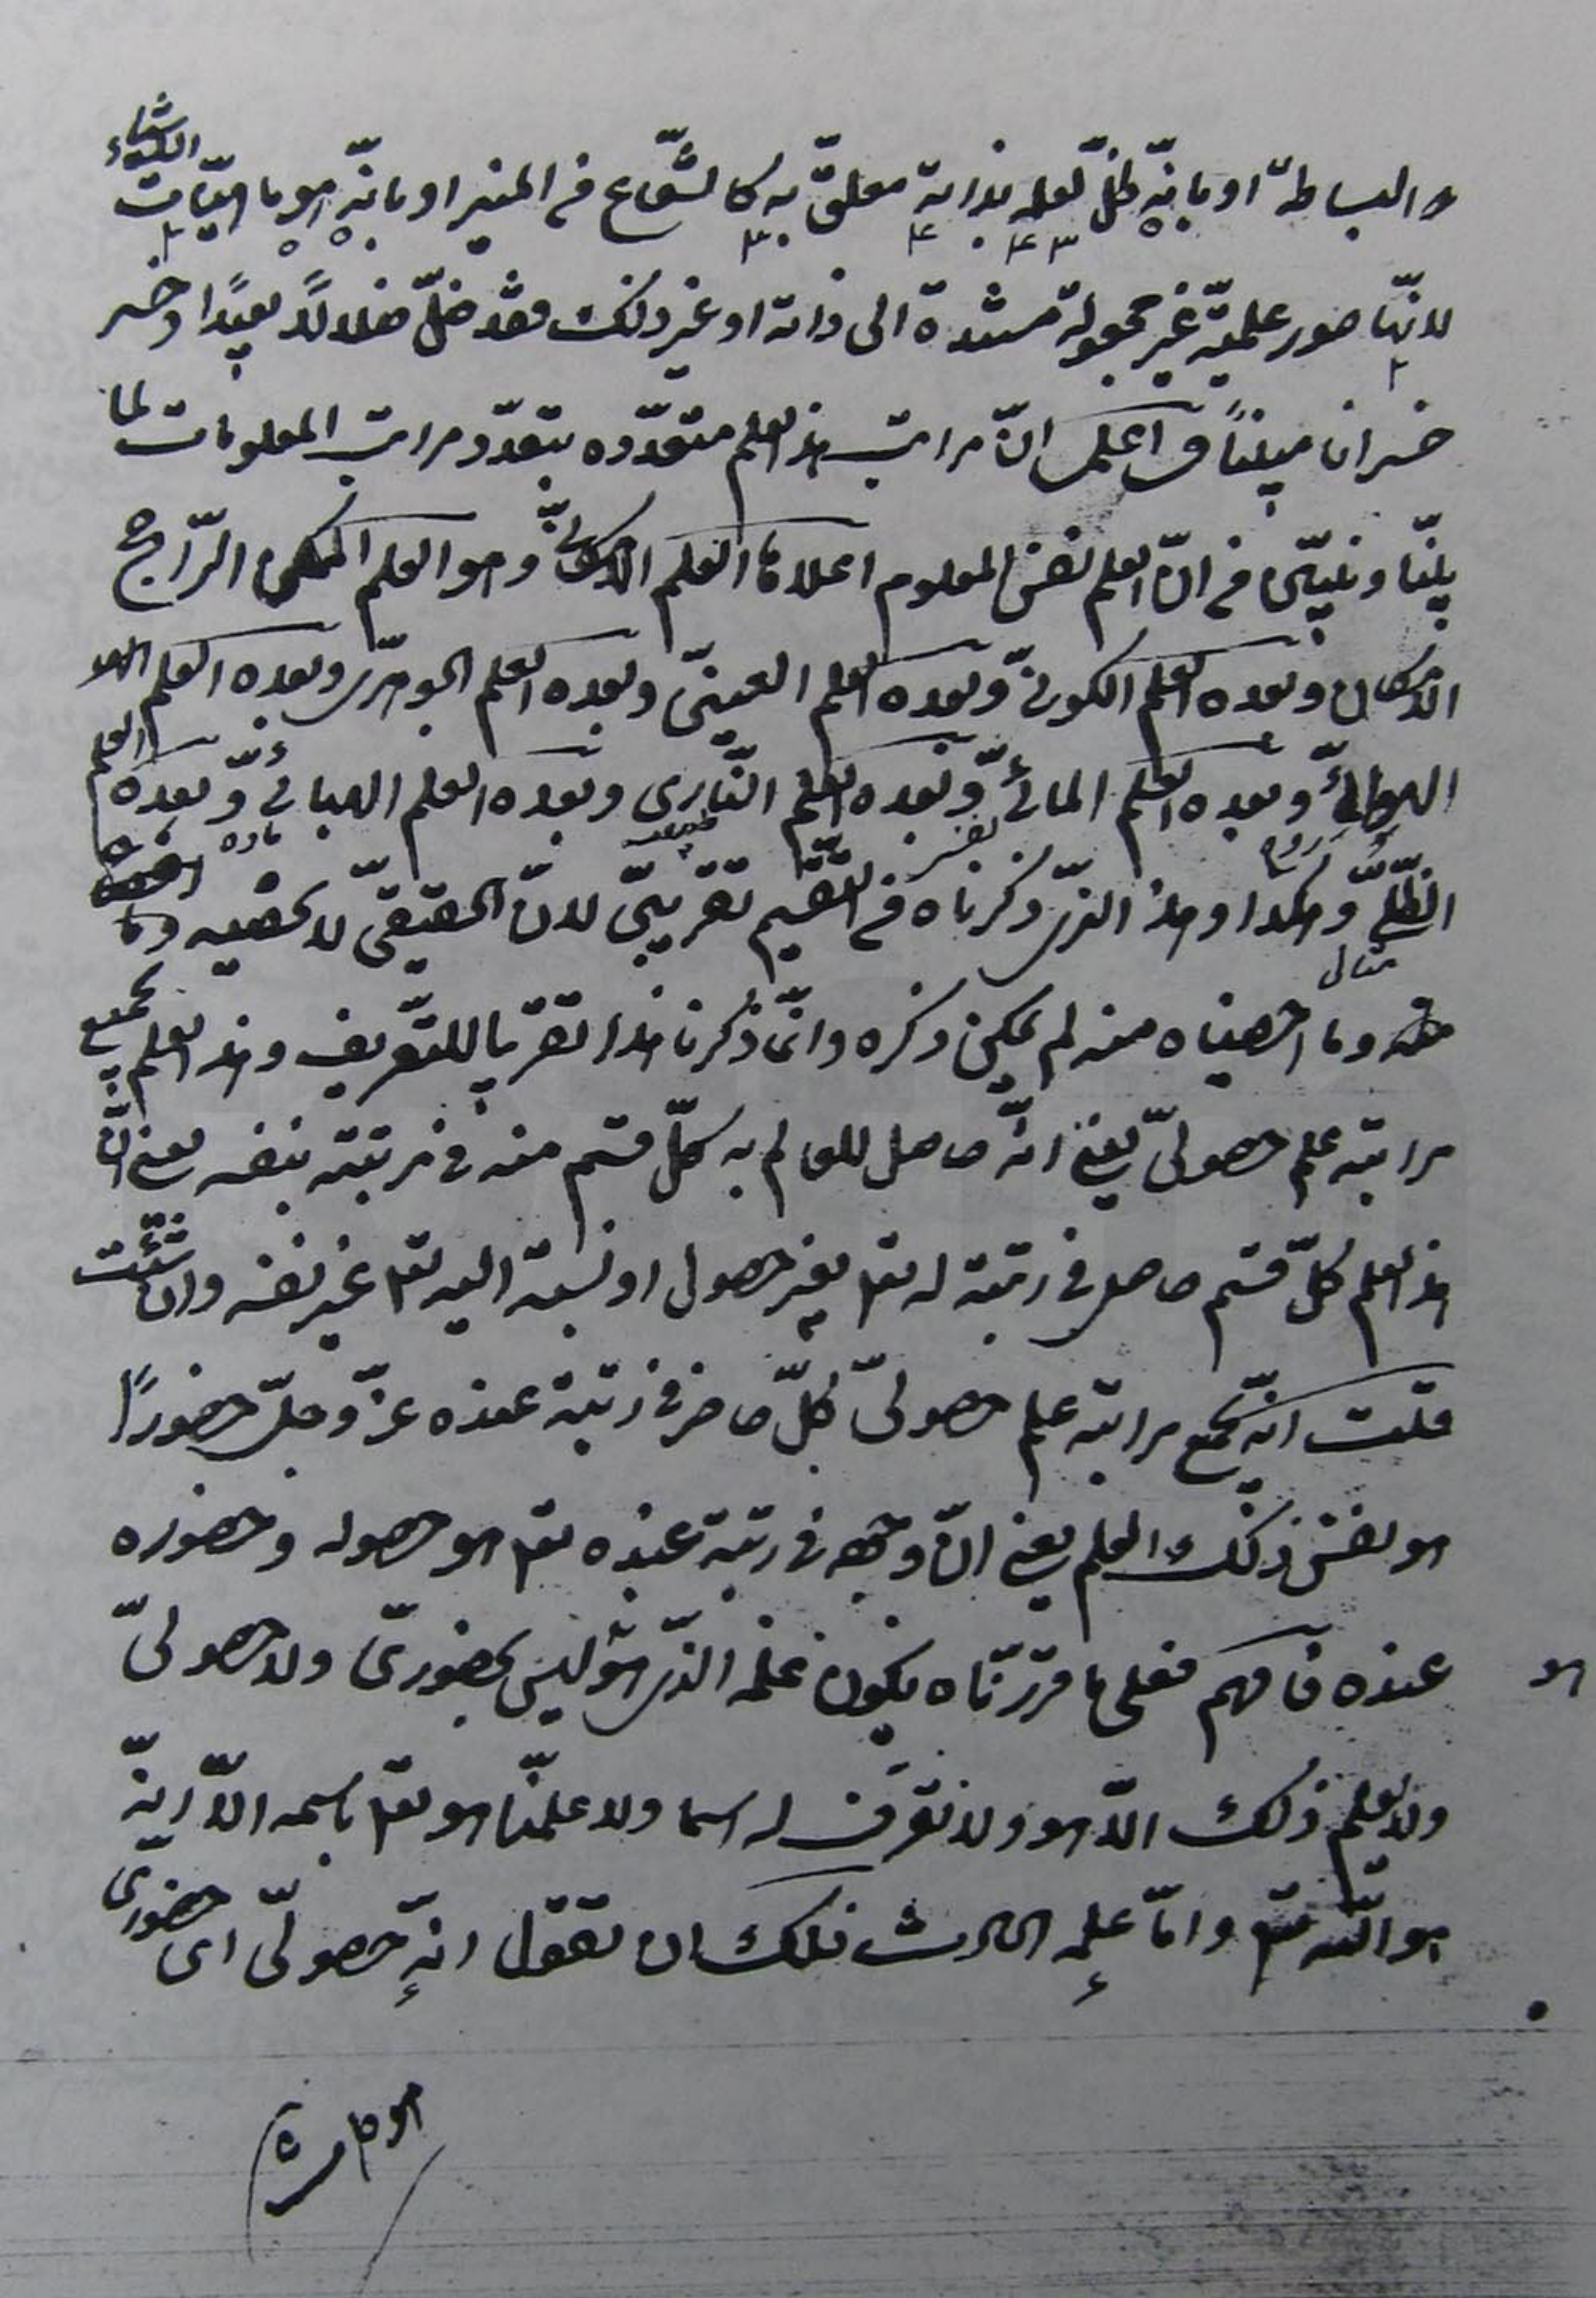 والبساطة او بانّه ظلّ لعلمه بذاته معلق به كالشّعاع فى المنير او بانّه هو ماهيّات الاشياء
لانّها صور علميّة غير مجعولة مستندة الى ذاته او غير ذلك فقد ضلّ ضلالاً بعيدًا وخسر
خسرانا مبينًا واعلم انّ مراتب هذا العلم متعدّده بتعدّد مراتب المعلومات لما
بيّنّا ونبيّن فى انّ العلم نفس المعلوم اعلاها العلم الامكانىّ وهو العلم الممكن الرّاجح
الامكان وبعده العلم الكونىّ وبعده العلم العينىّ وبعده العلم الجوهرىّ وبعده العلم
الهوائىّ وبعده العلم المائىّ وبعده العلم النّارى وبعده العلم الهبائىّ وبعده العلم
الظّلّىّ وهكذا وهذا الذى ذكرناه فى التّقسيم تقريبىّ لانّ الحقيقىّ لا نحصيه وما
نفس
طبيعة
مادة
مثال
وما احصيناه منه لم يمكن ذكره وانّما ذكرنا هذا تقريبا للتّعريف وهذا العلم بجميع
مراتبه علم حصولىّ يعنى انّه حاصل للعالم به كلّ قسم منه فى مرتبته بنفسه يعنى انّ
هذا العلم كلّ قسم حاصل فى رتبته له تعالى بغير حصول او نسبة اليه تعالى غير نفسه وان شئت
قلت انّه بجميع مراتبه علم حصولىّ كلّ حاضر فى رتبة عنده عزّ وجلّ حضورًا
هو نفس ذلك العلم يعنى انّ وجهه فى رتبة عنده تعالى هو حصوله وحضوره
عنده فافهم فعلى ما قرّرناه يكون علمه الذى هو هو ليس بحضورىّ ولا حصولىّ
ولا يعلم ذلك الاّ هو ولا نعرف له اسما ولا علّمنا هو تعالى باسمه الاّ انّه
هو اللّه تعالى وامّا علمه الحادث فلك ان تقول انّه حصولىّ اى حضورى